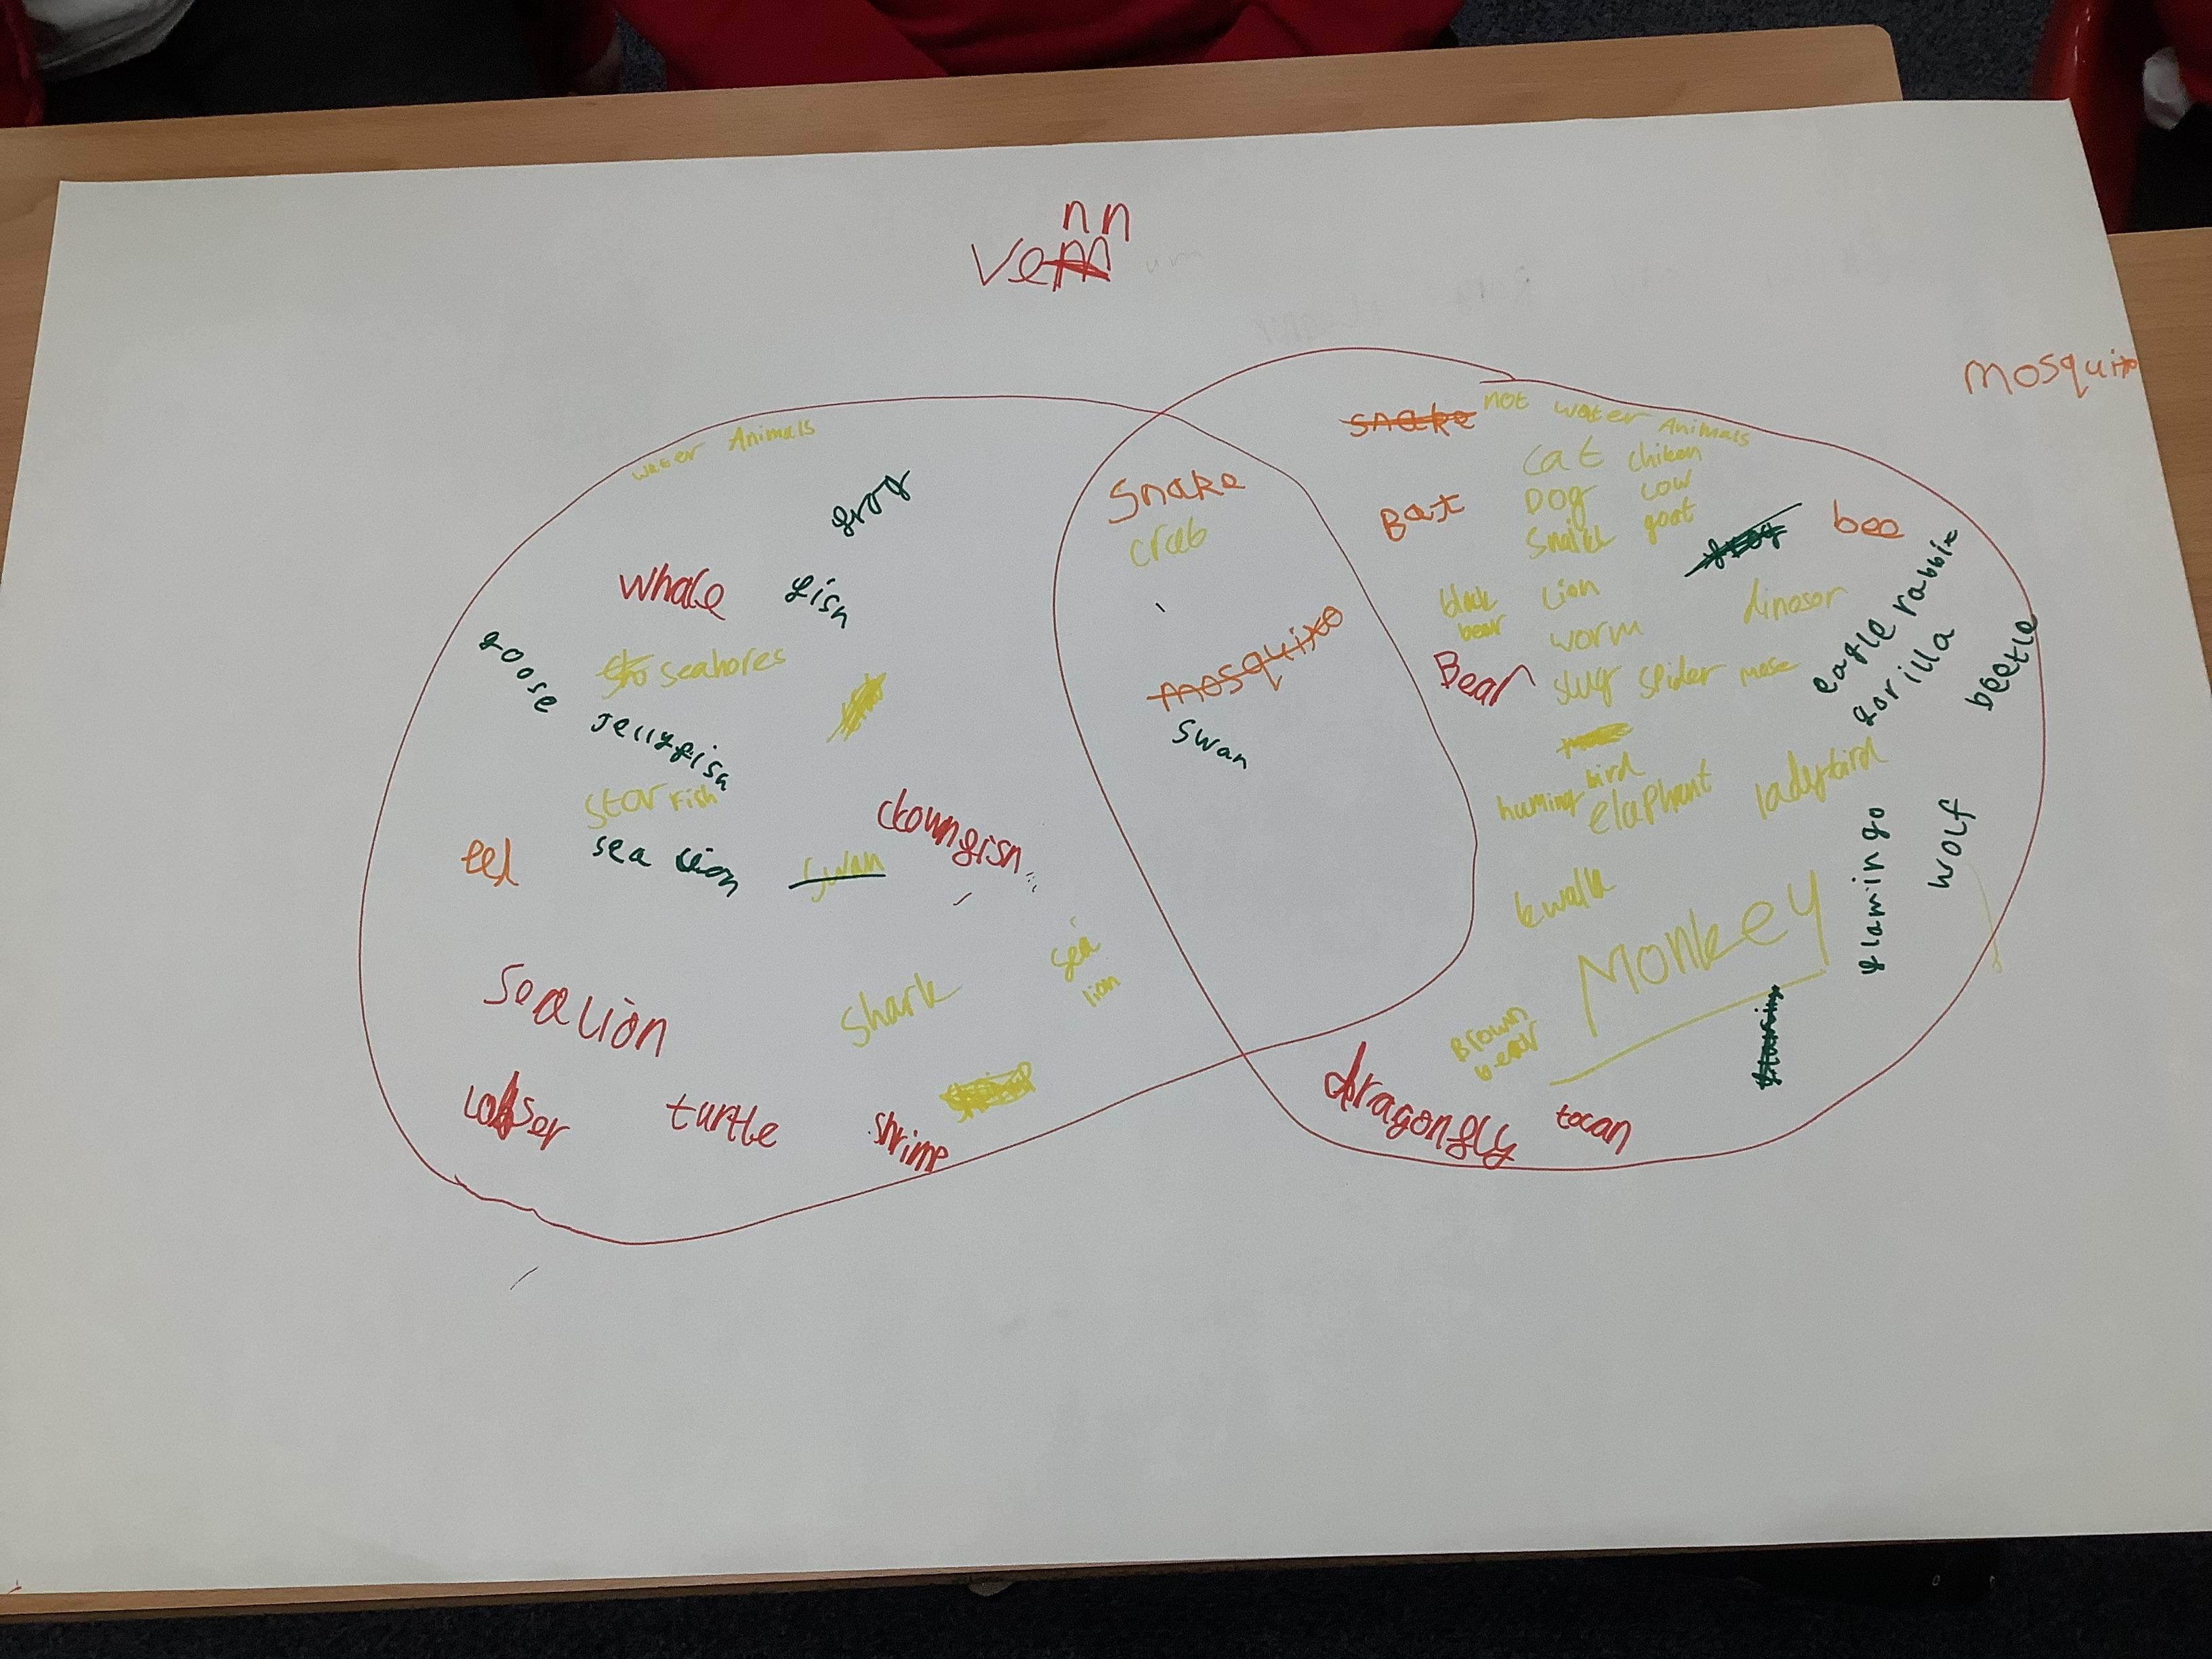 nn
Ve
mosquito
water Animals
frog
whale
fish
goose
seahores
Jellyfish
star fish
eel
sea lion
swan
clownfish
sea lion
shark
sea
lion
turtle
shrimp
snake
crab
mosquito
swan
snake
not water Animals
cat chiken
Bat
Dog cow
goat
frog
bee
black
bear
Lion
worm
dinosor
Bear
slug spider
eagle
rabbie
gorilla
beetle
huming bird
elaphant
ladybird
kwalla
Monkey
flamingo
wolf
Brown
bear
dragonfly
tocan